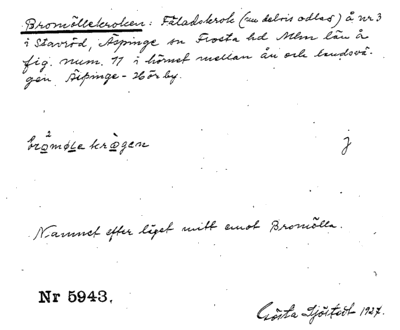 Bromöllekroken: Fäladskrok (nu delvis odlad) å nr 3
i Stavröd, Äspinge sn Frosta hd Mlm län å
fig. num. 77 i hörnet mellan ån och landsvä-
gen Äspinge - Hörby.
j
Namnet efter läget mitt emot Bromölla.
Nr 5943.
Gösta Sjöstedt 1927.